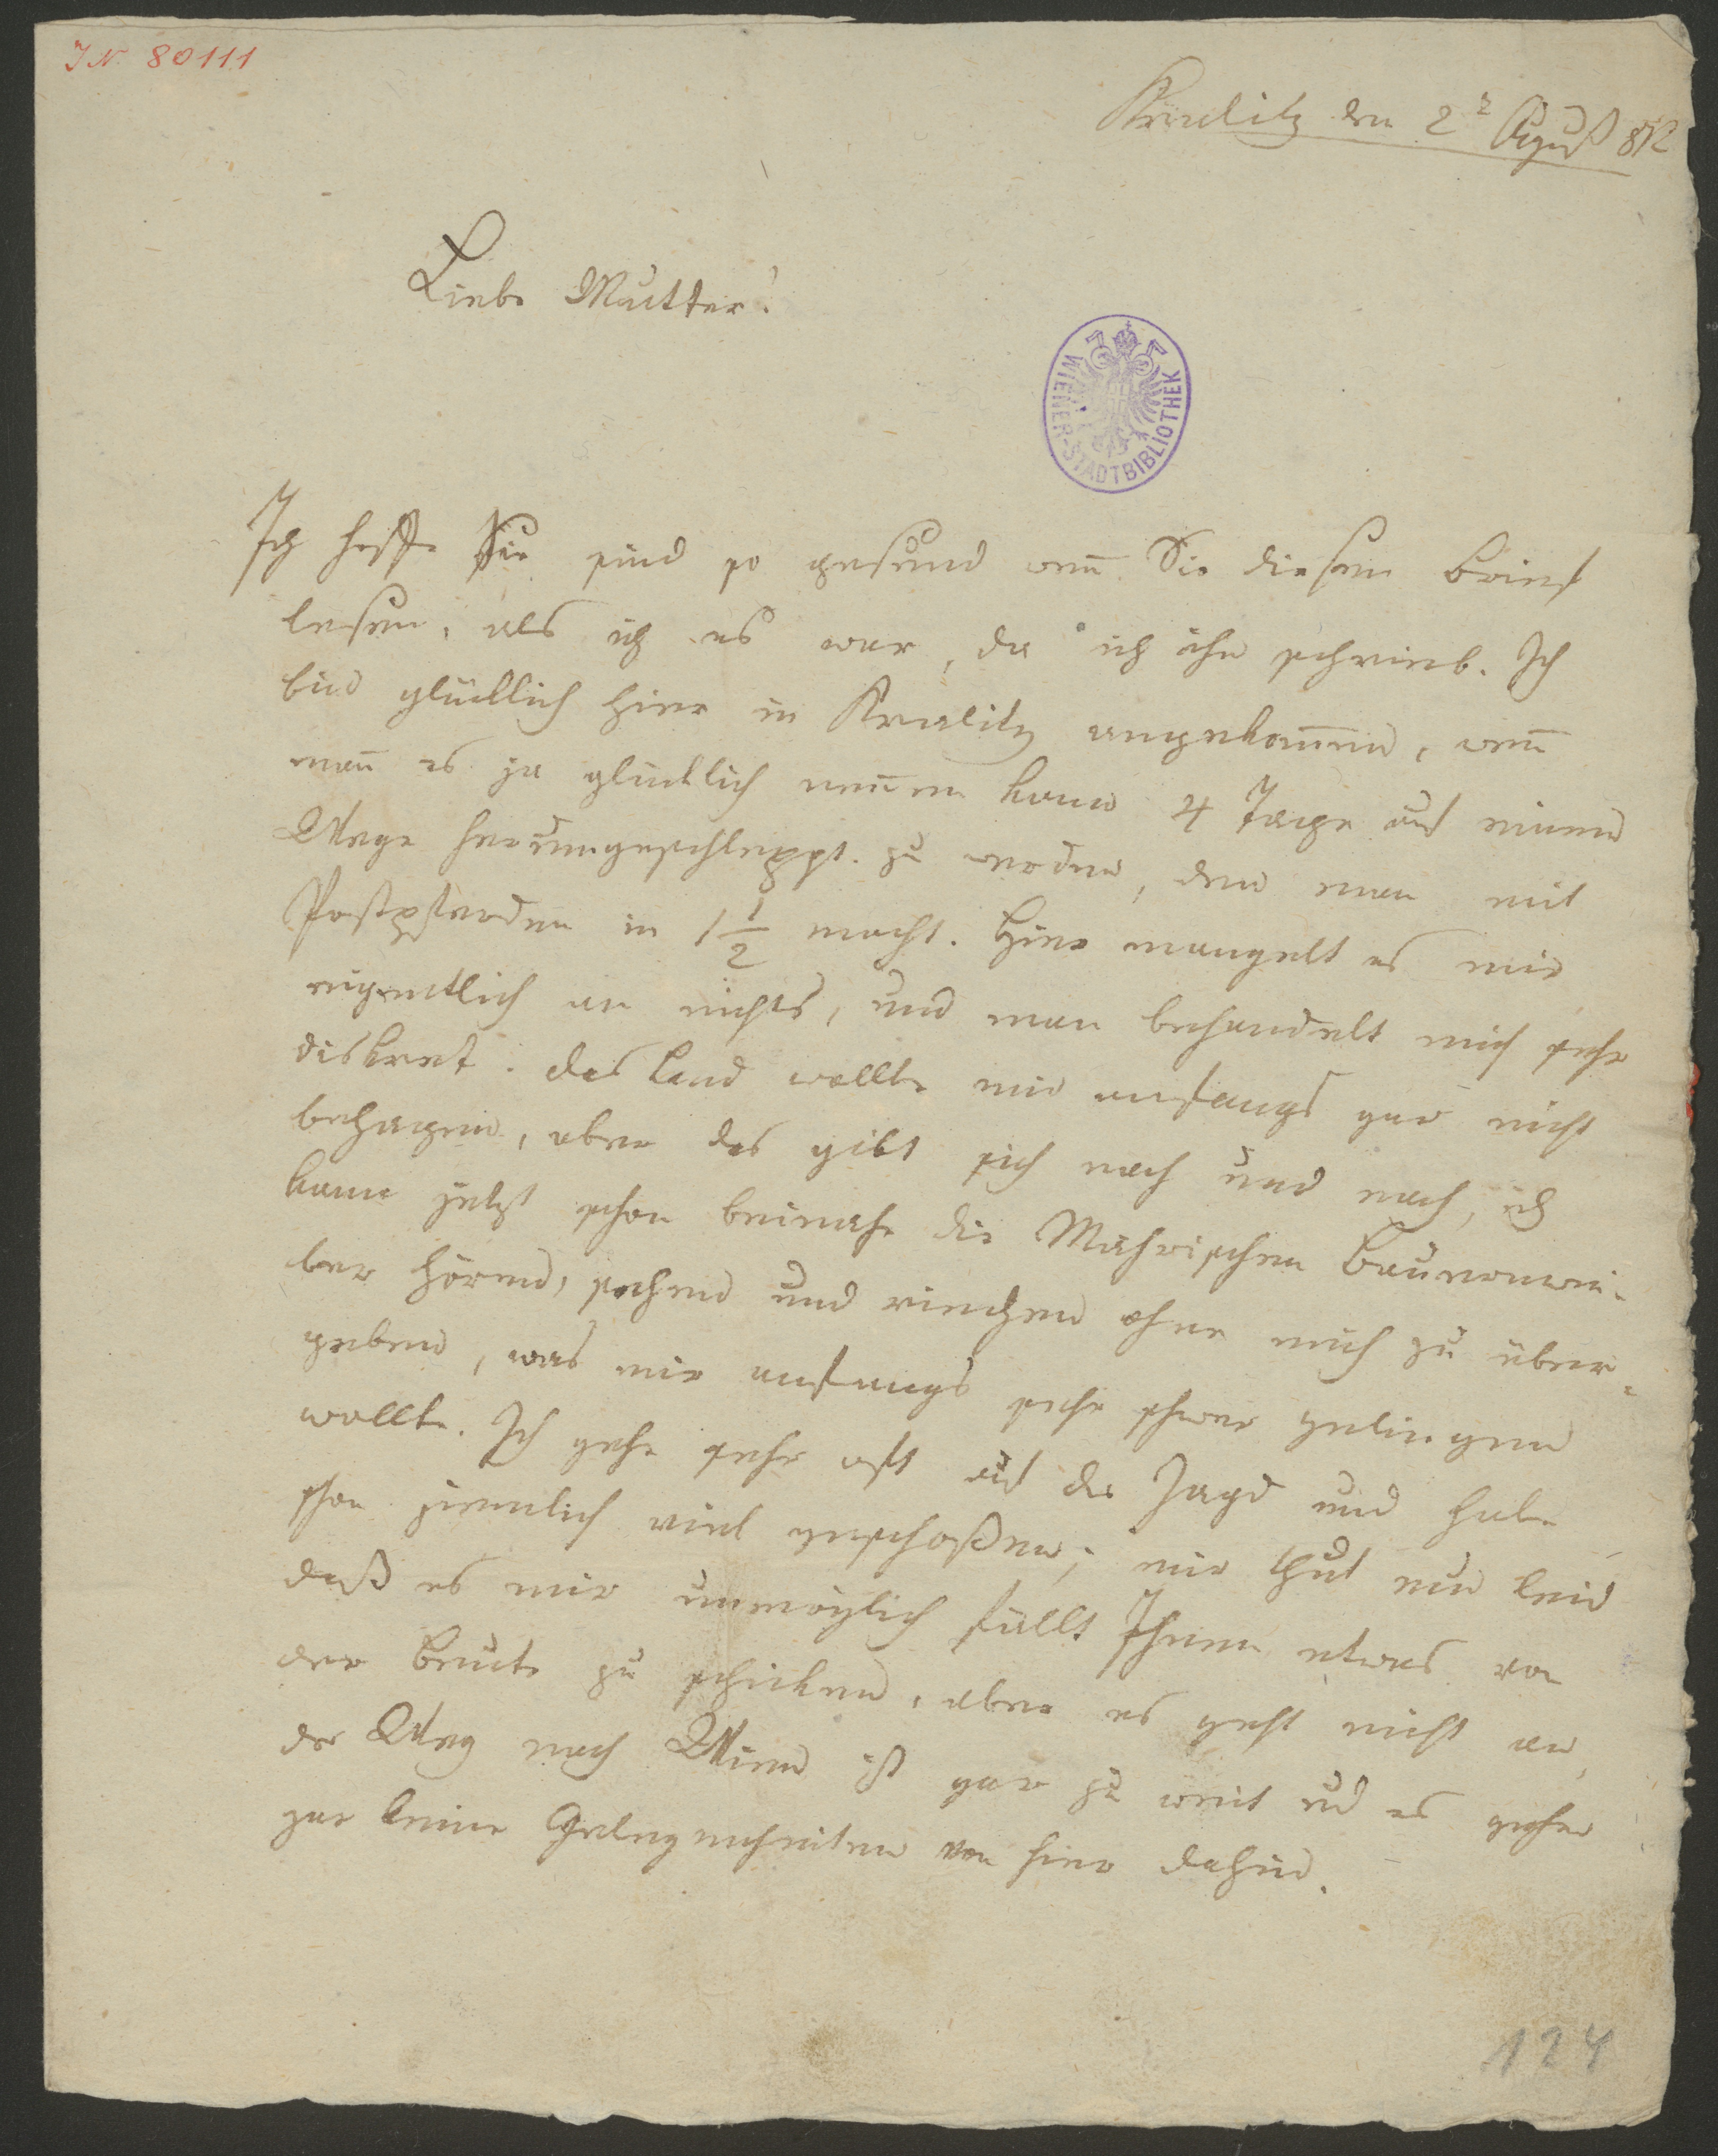 IN. 80111
Kralitz den 2t August 812
Liebe Mutter!
WIENER-STADTBIBLIOTHEK
Ich hoffe Sie sind so gesund weñ Sie diesen Brief
lesen, als ich es war, da ich ihn schrieb. Ich
bin glücklich hier in Kralitz angekom̄en, weñ
mañ es ja glücklich neñen kann 4 Tage auf einem
Wege herumgeschleppt zu werden, den man mit
Postpferden in 1 1/2 macht. Hier mangelt es mir
eigentlich an nichts, und man behandelt mich sehr
diskret. Das Land wollte mir anfangs gar nicht
behagen, aber das gibt sich nach und nach, ich
kann jetzt schon beinahe die Mährischen Bauernwei-
ber hören, sehen und riechen ohne mich zu über-
geben, was mir anfangs sehr schwer gelingen
wollte. Ich gehe sehr oft auf die Jagd und habe
schon ziemlich viel geschoßen; mir thut nur leid
daß es mir unmöglich fällt Ihnen etwas von
der Beute zu schicken, aber es geht nicht an,
der Weg nach Wien ist gar zu weit und es gehen
gar keine Gelegenheiten von hier dahin.
124